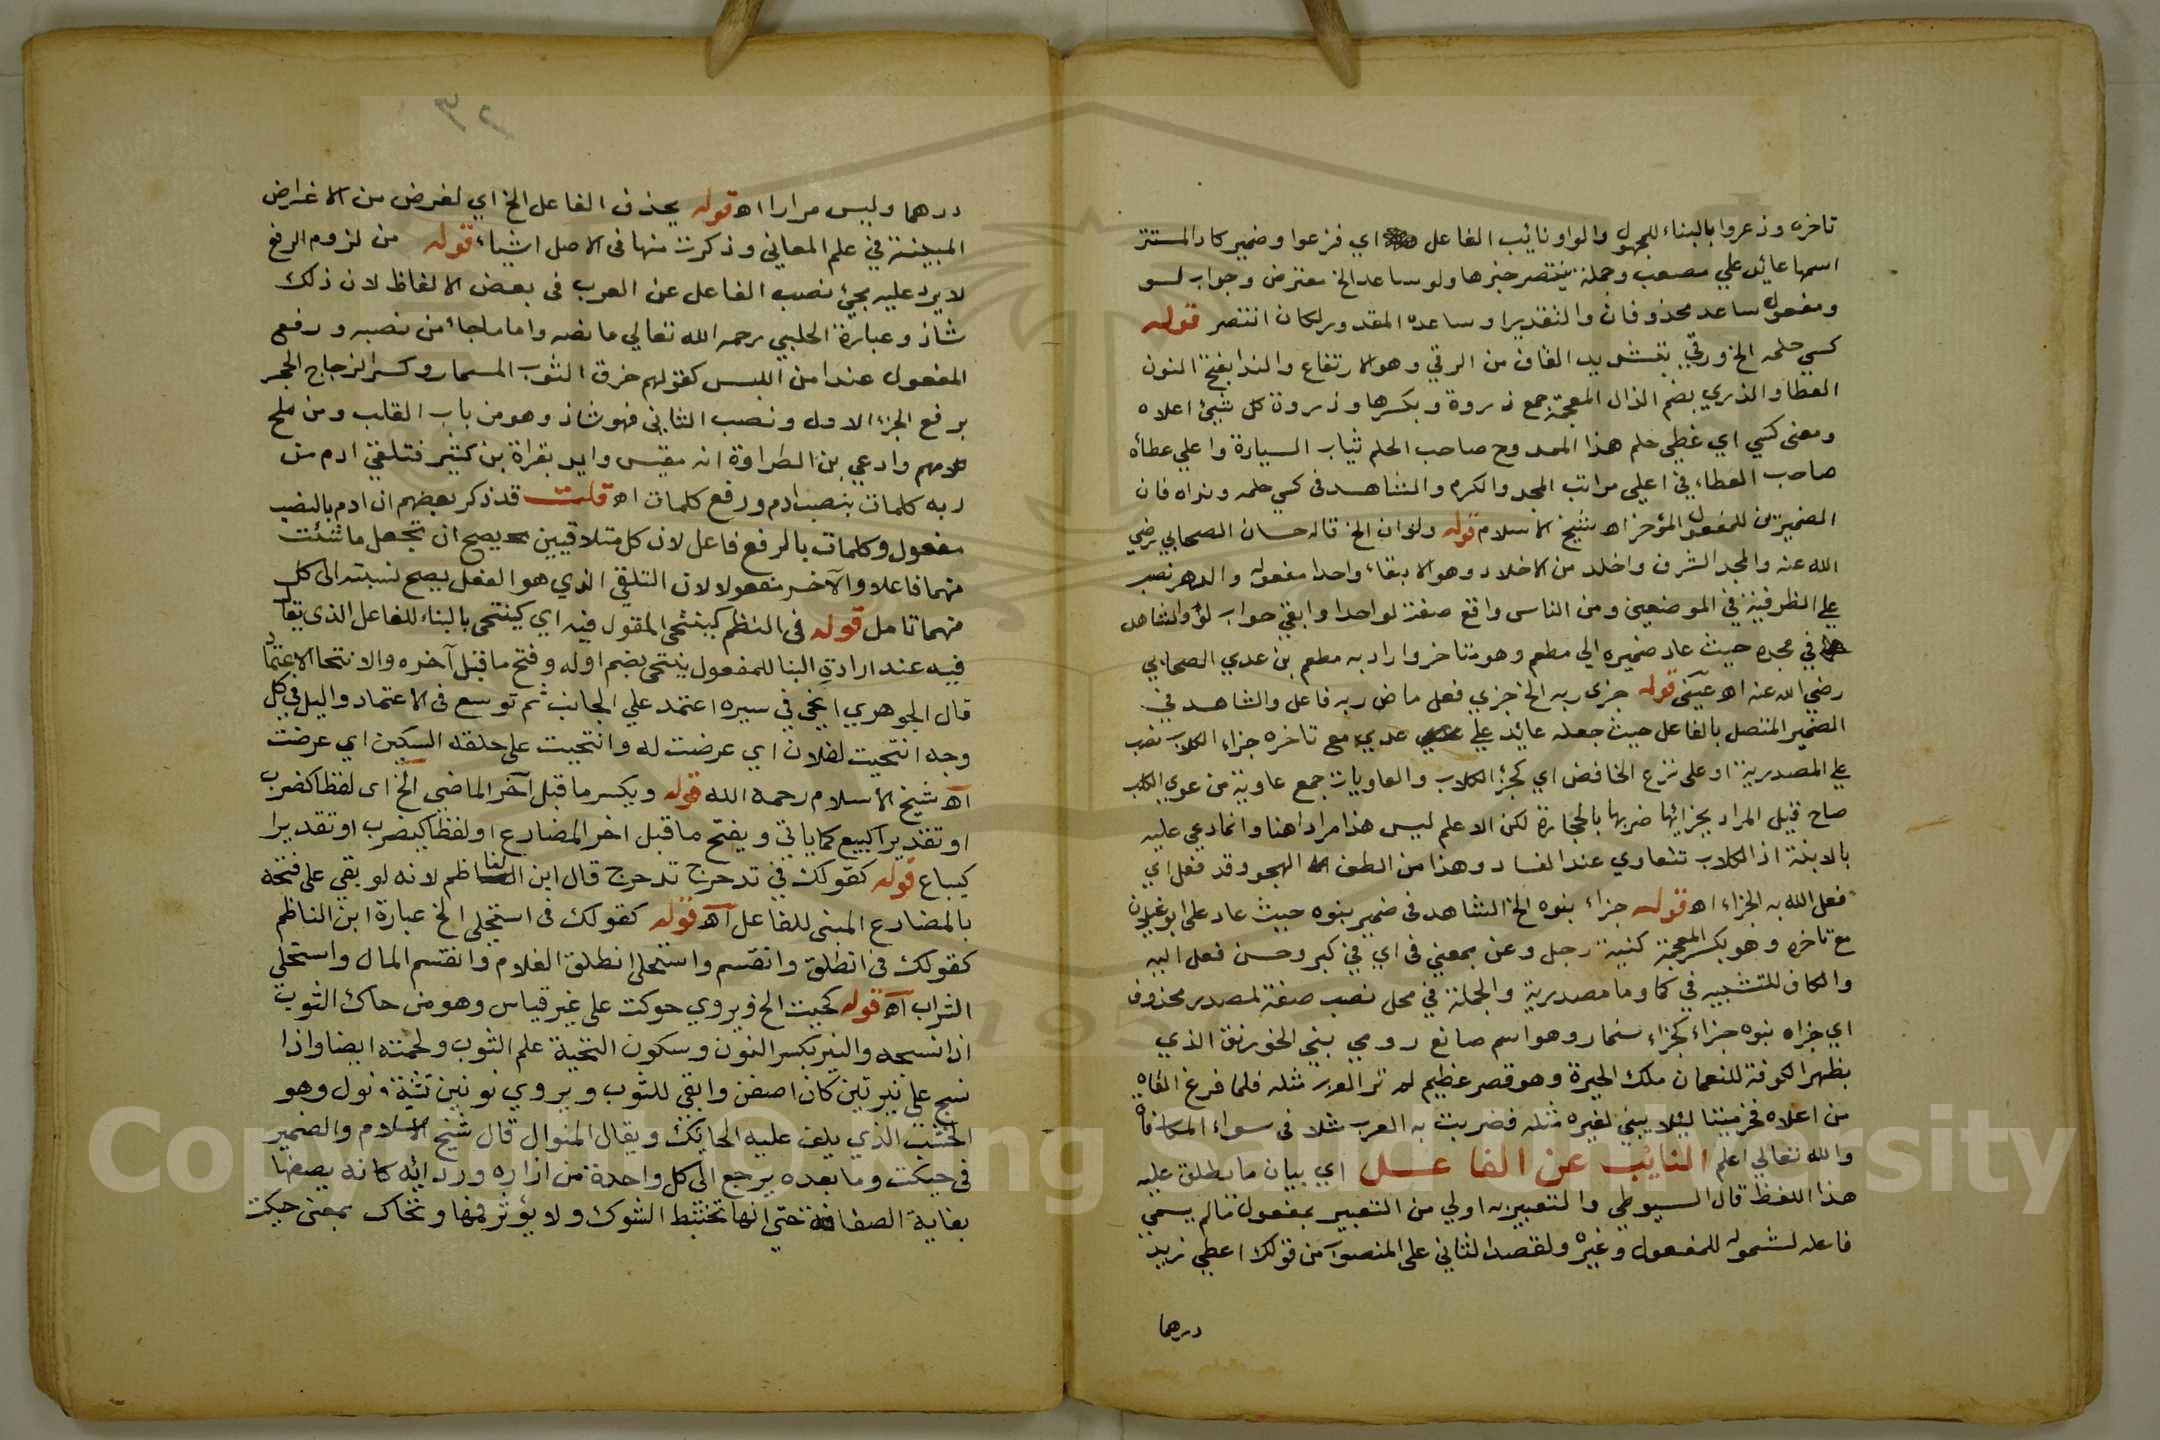 تاخره وذعروا بالبناء للمجهول والواو نائب الفاعل اي فزعوا وضمير كاد المستتر
اسمها عائد علي مصعب وجملة ينتصر خبرها ولو ساعد الخ معترض وجواب لو
ومفعول ساعد محذوفان والتقدير او ساعده المقدور لكان انتصر قوله
كسي حلمه الخ ورقي بتشديد القاف من الرقي وهو الارتفاع والندا بفتح النون
العطا والذري بضم الذال المعجمة جمع ذروة وبكسرها وذروة كل شيئ اعلاه
ومعنى كسي اي غطي حلم هذا الممدوح صاحب الحلم ثياب السيادة واعلي عطاؤه
صاحب العطاء في اعلي مراتب المجد والكرم والشاهد في كسي حلمه ونداه فان
الضميرين للمفعول المؤخر اه شيخ الاسلام قوله ولو ان الخ قاله حسان الصحابي رضي
الله عنه والمجد الشرف واخلد من الاخلاد وهو الابقاء واحدا مفعوله والدهر نصب
علي الظرفية في الموضعين ومن الناس واقع صفة لواحدا وابقي جواب لو والشاهد
في مجده حيث عاد ضميره الي مطعم وهو متاخر واراد به مطعم بن عدي الصحابي
رضي الله عنه اه عيني قوله جزى ربه الخ جزي فعل ماض ربه فاعل والشاهد في
الضمير المتصل بالفاعل حيث جعله عائد علي عدي مع تاخره جزاء الكلاب نصب
علي المصدرية او على نزع الخافض اي كجزا الكلاب والعاويات جمع عاوية من عوي الكلب
صاح قيل المراد بجزائها ضربها بالحجارة لكن الاعلم ليس هذا مرادا هنا وانما دعي عليه
بالابنة اذ الكلاب تتعاوي عند الفساد وهذا من الطف الهجو وقد فعل اي
فعل الله به الجزاء اه قوله جزاء بنوه الخ الشاهد في ضمير بنوه حيث عاد على ابو غيلان
مع تاخره وهو بكسر المعجمة كنية رجل وعن بمعني في اي في كبر وحسن فعل اليه
والكاف للتشبيه في كما وما مصدرية والجملة في محل نصب صفة لمصدر محذوف
اي جزاه بنوه جزاء كجزاء سنمار وهو اسم صانع رومي بني الخورنق الذي
بظهر الكوفة للنعمان ملك الحيرة وهو قصر عظيم لم تر العرب مثله فلما فرغ القاه
من اعلاه فخر ميتا لئلا يبني لغيره مثله فضربت به العرب مثلا في سوء المكافاة
والله تعالي اعلم النايب عن الفاعل اي بيان ما يطلق عليه
هذا اللفظ قال السيوطي والتعبير به اولي من التعبير بمفعول مالم يسمي
فاعله لشموله للمفعول وغيره ولقصد الثاني على المنصوب من قولك اعطي زيد
درهما
درهما وليس مرادا اه قوله يحذف الفاعل الخ اي لغرض من الاغراض
المبينة في علم المعاني وذكرت منها في الاصل اشياء قوله من لزوم الرفع
لا يرد عليه مجيئ نصب الفاعل عن العرب في بعض الالفاظ لان ذلك
شاذ وعبارة الحلبي رحمه الله تعالي ما نصه واما ما جاء من نصبه ورفع
المفعول عند امن اللبس كقولهم خرق الثوب المسمار وكسر الزجاج الحجر
برفع الجزء الاول ونصب الثاني فهو شاذ وهو من باب القلب ومن ملح
كلامهم وادعي بن الطراوة انه مقيس وايد بقراة بن كثير فتلقي ادم من
ربه كلمات بنصب ادم ورفع كلمات اه قلت قد ذكر بعضهم ان ادم بالنصب
مفعول وكلمات بالرفع فاعل لان كل متلاقيين يصح ان تجعل ما شئت
منهما فاعلا والآخر مفعولا لان التلقي الذي هو الفعل يصح نسبته الى كل
منهما تامل قوله في النظم كينتحي المقول فيه اي كينتحى بالبناء للفاعل الذي يقال
فيه عند ارادة البنا للمفعول ينتحى بضم اوله وفتح ما قبل آخره والانتحا الاعتماد
قال الجوهري انحي في سيره اعتمد علي الجانب ثم توسع في الاعتماد والميل في كل
وجه انتحيت لفلان اي عرضت له وانتحيت على حلقه السكين اي عرضت
اه شيخ الاسلام رحمه الله قوله ويكسر ما قبل آخر الماضي الخ اى لفظا كضرب
او تقديرا كبيع كما ياتي ويفتح ما قبل اخر المضارع او لفظا كيضرب او تقديرا
كيباع قوله كقولك في تدحرج تدحرج قال ابن الناظم لانه لو بقي على فتحه
بالمضارع المبنى للفاعل اه قوله كقولك في استحلي الخ عبارة ابن الناظم
كقولك في انطلق واقتسم واستحلي انطلق الغلام واقتسم المال واستحلي
الشراب اه قوله كحيت الخ ويروي حوكت على غير قياس وهو من حاك الثوب
اذا نسجه والنير بكسر النون وسكون التحتية علم الثوب ولحمته ايضا واذا
نسج علي نيرتين كان اصفق وابقي للثوب ويروي نونين تثنية نول وهو
الخشب الذي يلف عليه الحايك ويقال المنوال قال شيخ الاسلام والضمير
في حيكت وما بعده يرجع الى كل واحدة من ازاره وردائه كانه يصفها
بغاية الصفاقة حتي انها تختبط الشوك ولا يؤثر فيها وتحاك بمعنى حيكت
Copyright © King Saud University